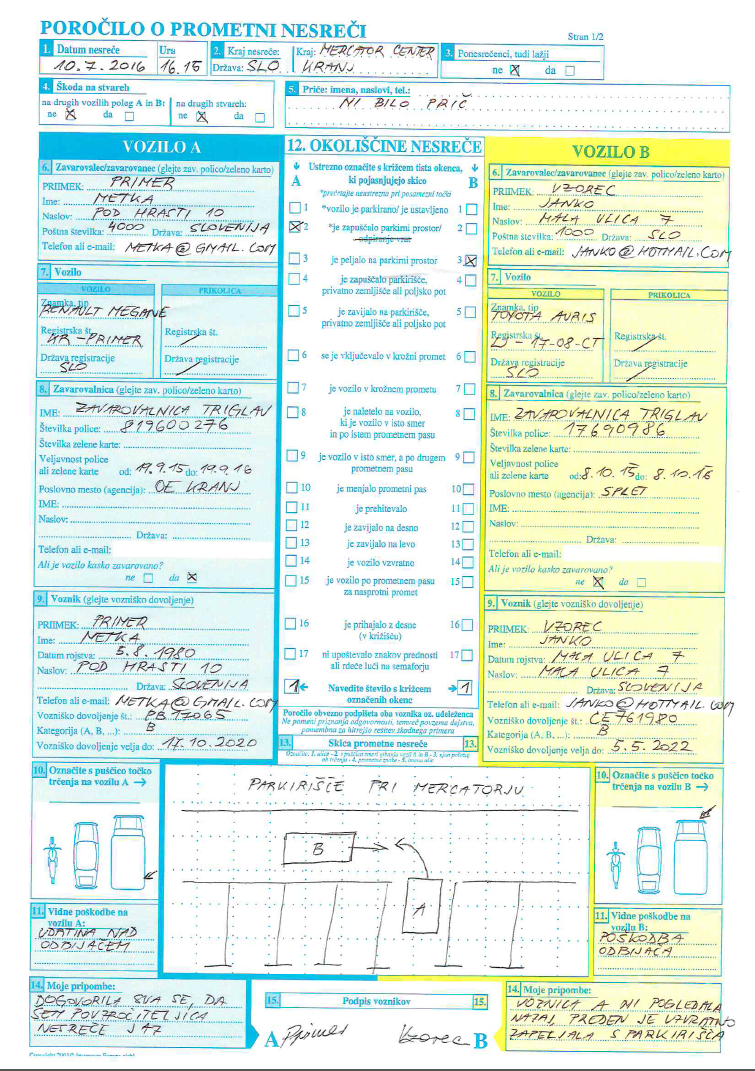 POROČILO O PROMETNI NESREČI
Stran 1/2
1. Datum nesreče Ura
10.7.2016 16.15
2. Kraj nesreče: Kraj: MERCATOR CENTER
Država: SLO KRANJ
3. Ponesrečenci, tudi lažji
ne X da
4. Škoda na stvareh
na drugih vozilih poleg A in B: na drugih stvareh:
ne X da ne X da
5. Priče: imena, naslovi, tel.:
NI BILO PRIČ
VOZILO A
6. Zavarovalec/zavarovanec (glejte polic/zeleno karto)
PRIIMEK: PRIMER
Ime: METKA
Naslov: POD HRASTI 10
Poštna številka: 4000 Država: SLOVENIJA
Telefon ali e-mail: METKA@GMAIL.COM
7. Vozilo
VOZILO PRIKOLICA
Znamka, tip
RENAULT MEGANE
Registrska št. Registrska št.
KR-PRIMER
Država registracije Država registracije
SLO
8. Zavarovalnica (glejte zav. polico/zeleno karto)
IME: ZAVAROVALNICA TRIGLAV
Številka police: 819600276
Številka zelene karte:
Veljavnost police
ali zelene karte od: 19.9.15 do: 19.9.16
Poslovno mesto (agencija): OE KRANJ
IME:
Naslov:
Država:
Telefon ali e-mail:
Ali je vozilo kasko zavarovano?
ne da X
9. Voznik (glejte vozniško dovoljenje)
PRIIMEK: PRIMER
Ime: METKA
Datum rojstva: 5.8.1980
Naslov: POD HRASTI 10
Država: SLOVENIJA
Telefon ali e-mail: METKA@GMAIL.COM
Vozniško dovoljenje št.: PB 17065
Kategorija (A, B, ...): B
Vozniško dovoljenje velja do: 17.10.2020
10. Označite s puščico točko
trčenja na vozilu A →
11. Vidne poškodbe na
vozilu A:
UDRTINA NAD
ODBIJAČEM
14. Moje pripombe:
DOGOVORILA SVA SE, DA
SEM POVZROČITELJICA
NESREČE JAZ
12. OKOLIŠČINE NESREČE
Ustrezno označite s križcem tista okenca,
A ki pojasnjujejo skico B
*prečrtajte neustrezno pri posamezni točki
1 *vozilo je parkirano/ je ustavljeno 1
X 2 *je zapuščalo parkirni prostor/ 2
odpiranje vrat
3 je peljalo na parkirni prostor 3 X
4 je zapuščalo parkirišče, 4
privatno zemljišče ali poljsko pot
5 je zavijalo na parkirišče, 5
privatno zemljišče ali poljsko pot
6 se je vključevalo v krožni promet 6
7 je vozilo v krožnem prometu 7
8 je naletelo na vozilo, 8
ki je vozilo v isto smer
in po istem prometnem pasu
9 je vozilo v isto smer, a po drugem 9
prometnem pasu
10 je menjalo prometni pas 10
11 je prehitevalo 11
12 je zavijalo na desno 12
13 je zavijalo na levo 13
14 je vozilo vzvratno 14
15 je vozilo po prometnem pasu 15
za nasprotni promet
16 je prihajalo z desne 16
(v križišču)
17 ni upoštevalo znakov prednosti 17
ali rdeče luči na semaforju
1 ← Navedite število s križcem → 1
označenih okenc
Poročilo obvezno podpišeta oba voznika oz. udeleženca
Ne pomeni priznanja odgovornosti, temveč povzema dejstva,
pomembna za hitrejšo rešitev škodnega primera
13. Skica prometne nesreče 13.
PARKIRIŠČE PRI MERCATORJU
B
A
15. Podpis voznikov 15.
A Primer Vzorec B
VOZILO B
6. Zavarovalec/zavarovanec (glejte zav. polico/zeleno karto)
PRIIMEK: VZOREC
Ime: JANKO
Naslov: MALA ULICA 7
Poštna številka: 1000 Država: SLO
Telefon ali e-mail: JANKO@HOTMAIL.COM
7. Vozilo
VOZILO PRIKOLICA
Znamka, tip
TOYOTA AURIS
Registrska št. Registrska št.
LJ-17-08-CT
Država registracije Država registracije
SLO
8. Zavarovalnica (glejte zav. polico/zeleno karto)
IME: ZAVAROVALNICA TRIGLAV
Številka police: 17690986
Številka zelene karte:
Veljavnost police
ali zelene karte od: 8.10.15 do: 8.10.16
Poslovno mesto (agencija): SPLET
IME:
Naslov:
Država:
Telefon ali e-mail:
Ali je vozilo kasko zavarovano?
ne X da
9. Voznik (glejte vozniško dovoljenje)
PRIIMEK: VZOREC
Ime: JANKO
Datum rojstva: MALA ULICA 7
Naslov: MALA ULICA 7
Država: SLOVENIJA
Telefon ali e-mail: JANKO@HOTMAIL.COM
Vozniško dovoljenje št.: CE761980
Kategorija (A, B, ...): B
Vozniško dovoljenje velja do: 5.5.2022
10. Označite s puščico točko
trčenja na vozilu B →
11. Vidne poškodbe na
vozilu B:
POŠKODBA
ODBIJAČA
14. Moje pripombe:
VOZNICA A NI POGLEDALA
NAZAJ, PREDEN JE VZVRATNO
ZAPELJALA S PARKIRIŠČA